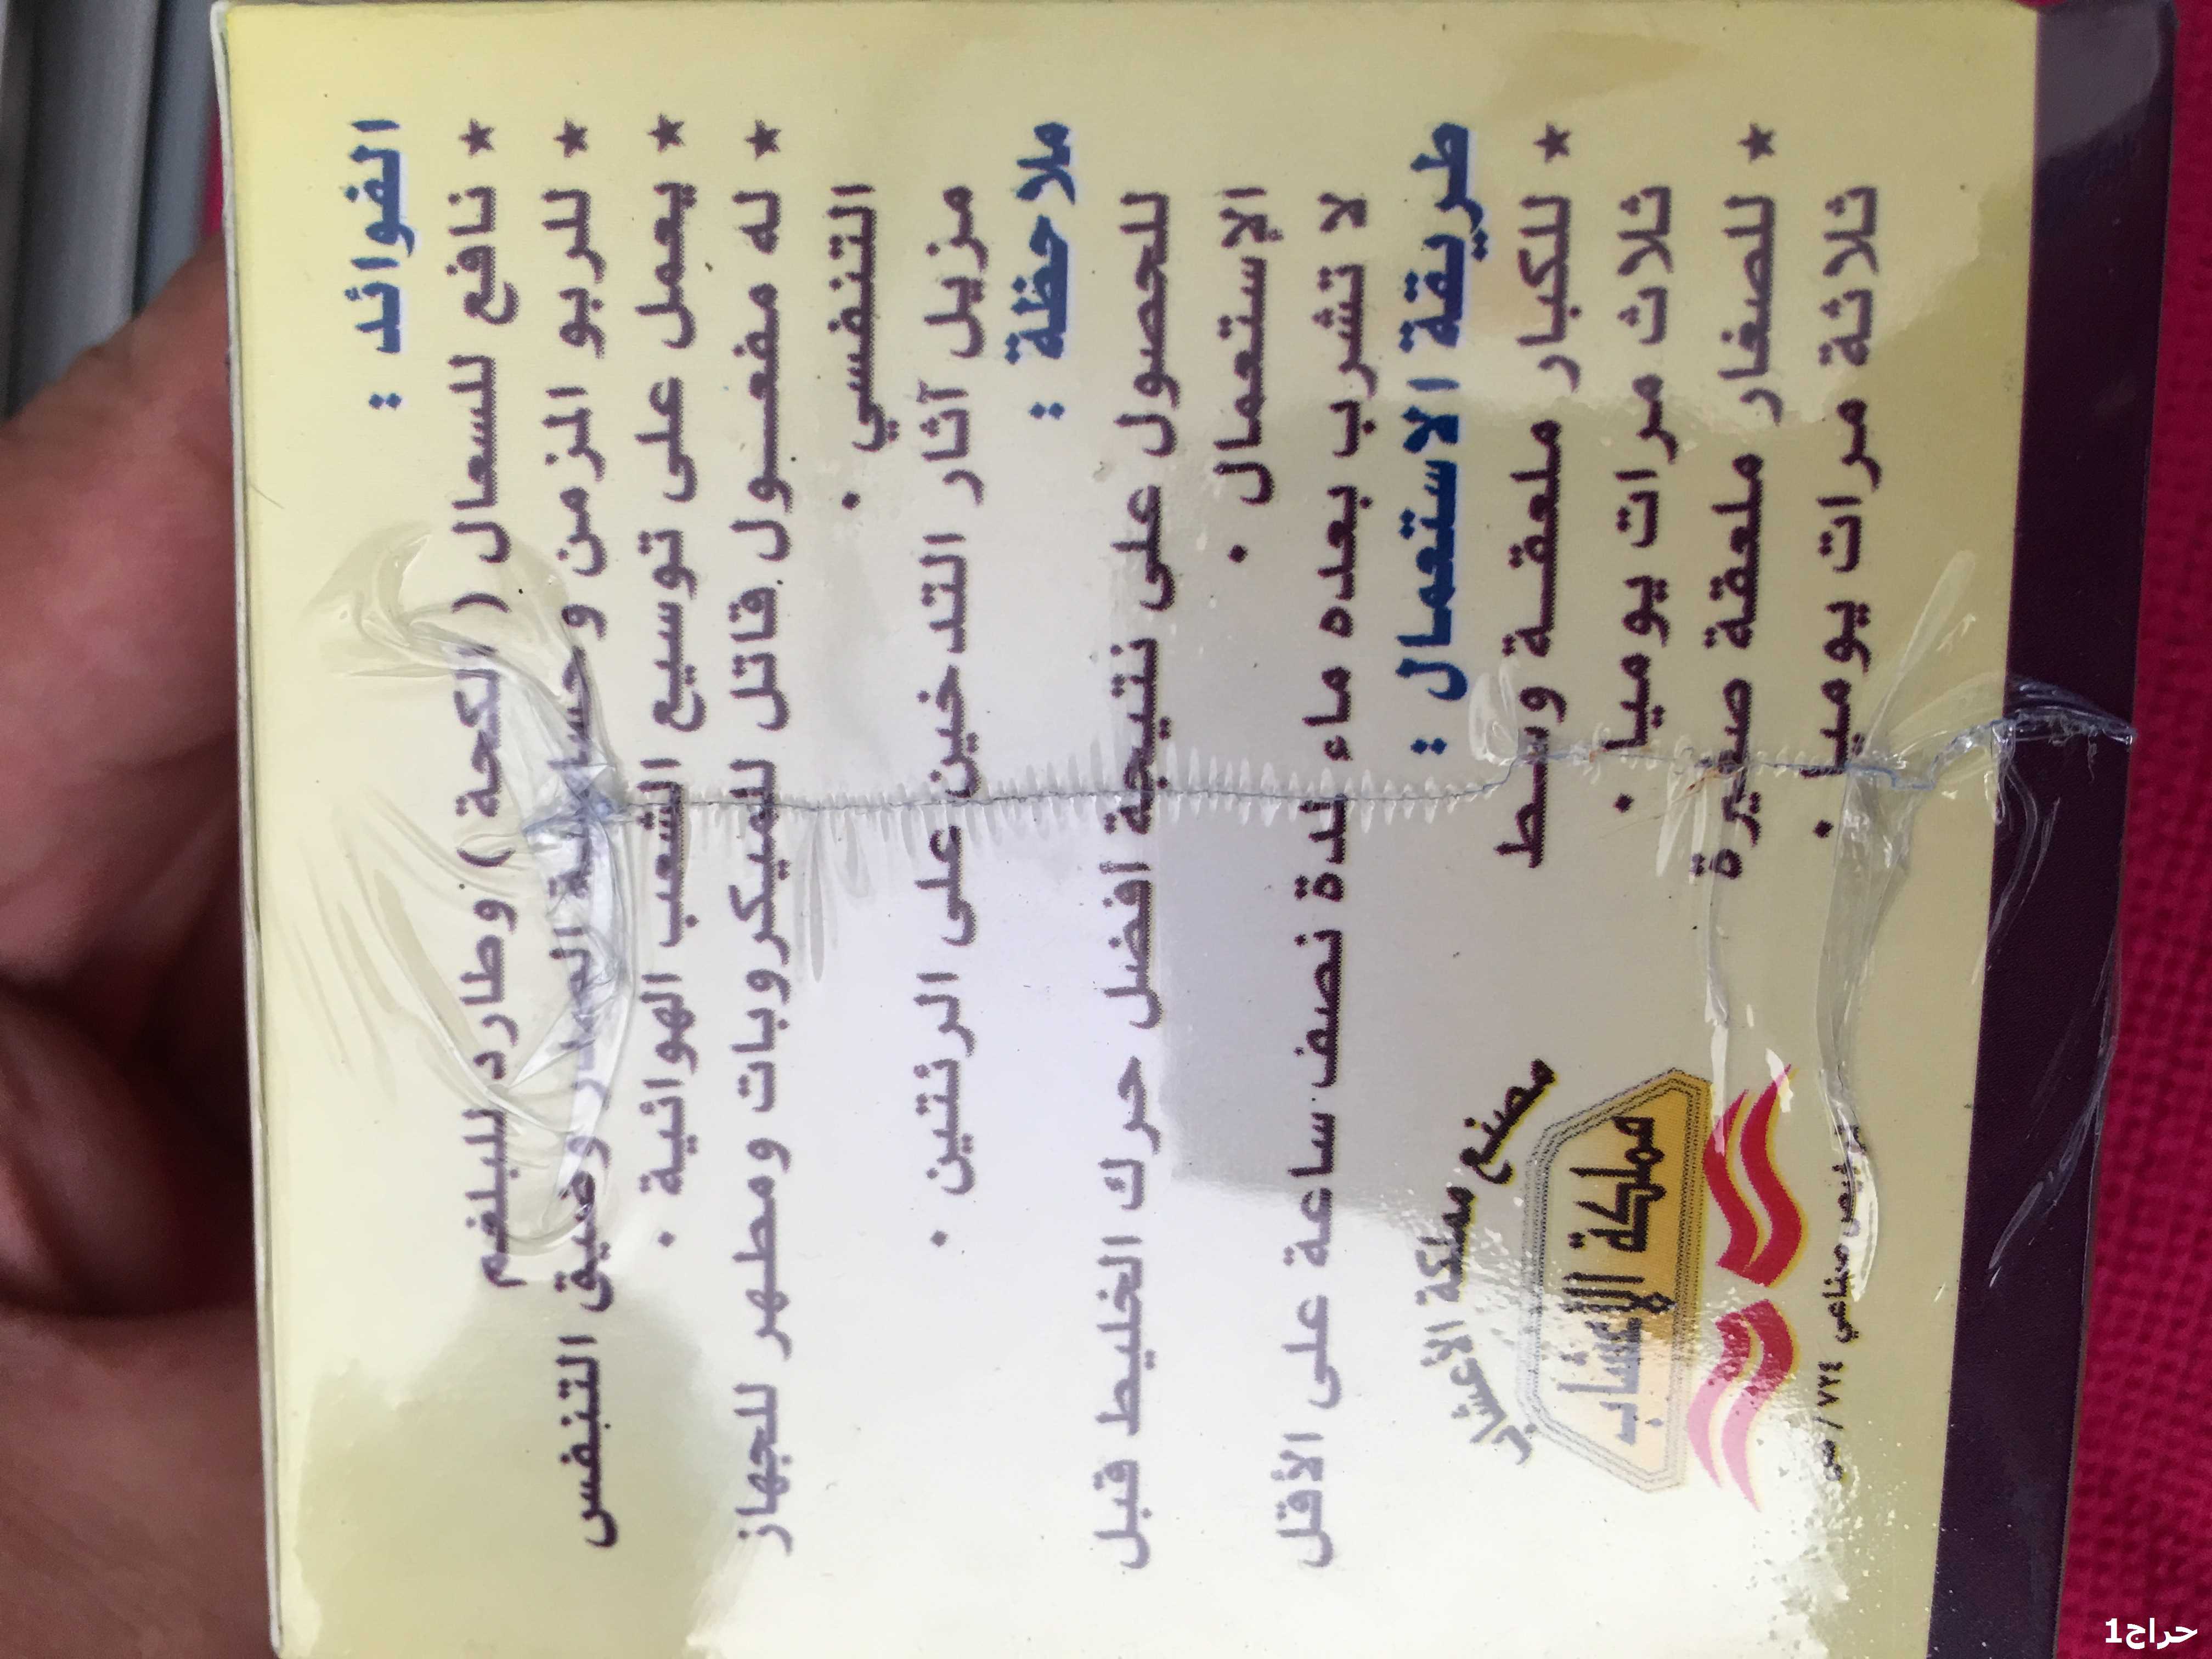 الفوائد :
★ نافع للسعال ( الكحة ) وطارد للبلغم
★ للربو المزمن و حساسية الصدر وضيق التنفس
★ يعمل على توسيع الشعب الهوائية .
★ له مفعول قاتل للميكروبات ومطهر للجهاز
التنفسي .
مزيل آثار التدخين على الرئتين .
ملاحظة :
للحصول على نتيجة أفضل حرك الخليط قبل
الإستعمال .
لا تشرب بعده ماء لمدة نصف ساعة على الأقل
طريقة الاستعمال :
★ للكبار ملعقة وسط
ثلاث مرات يوميا .
★ للصغار ملعقة صغيرة
ثلاثة مرات يوميا .
مصنع مملكة الأعشاب
مملكة الأعشاب
صناعي ٧٢٤ / ص
حراج1